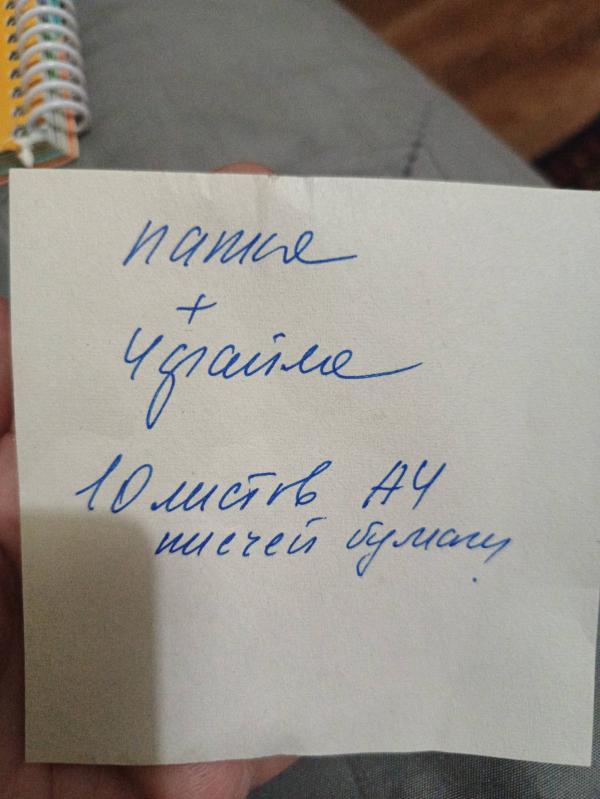 папка
+
4 файла
10 листов А4
писчей бумаги